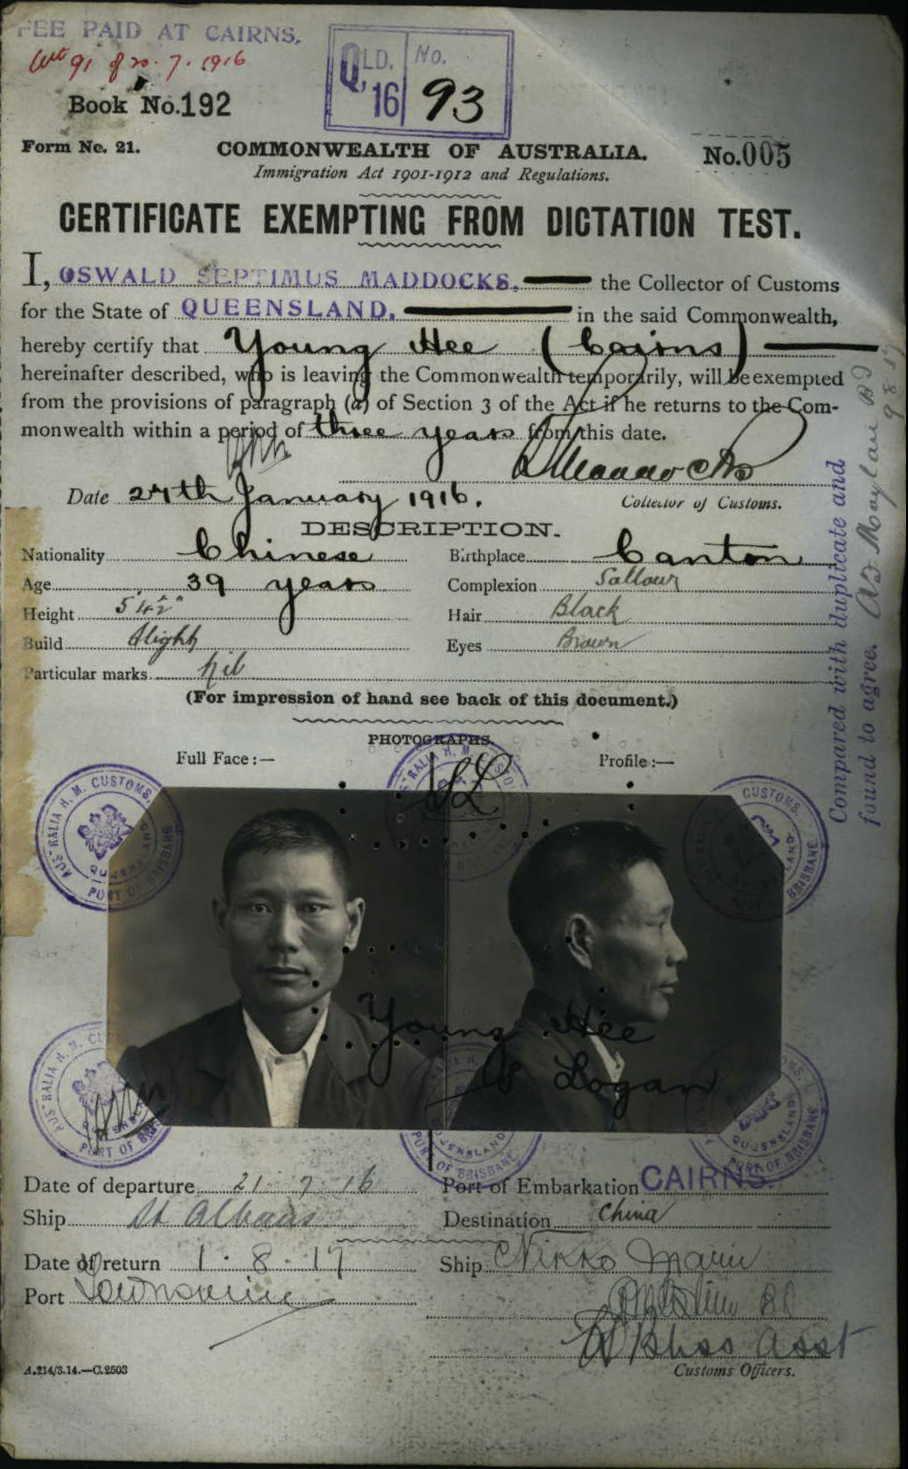 FEE PAID AT CAIRNS.
91 of 20.7.1916
QLD. No.
16 93
Book No.192
Form No. 21.
COMMONWEALTH OF AUSTRALIA.
No.005
Immigration Act 1901-1912 and Regulations.
CERTIFICATE EXEMPTING FROM DICTATION TEST.
I, OSWALD SEPTIMUS MADDOCKS, the Collector of Customs
for the State of QUEENSLAND. in the said Commonwealth,
hereby certify that Young Hee (Cairns)
hereinafter described, who is leaving the Commonwealth temporarily, will be exempted
from the provisions of paragraph (a) of Section 3 of the Act if he returns to the Com-
monwealth within a period of three years from this date.
Maddocks
Date 24th January 1916.
Collector of Customs.
DESCRIPTION.
Nationality Chinese Birthplace Canton
Age 39 years Complexion Sallow
Height 5' 4½" Hair Black
Build Slight Eyes Brown
Particular marks Nil
(For impression of hand see back of this document.)
PHOTOGRAPHS.
Full Face:— Profile:—
AUSTRALIA H. M. CUSTOMS.
QUEENSLAND
PORT OF BRISBANE
Young Hee
P Logan
Compared with duplicate and
found to agree.
Date of departure 21.7.16 Port of Embarkation CAIRNS.
Ship St Albans Destination China
Date of return 1.8.17 Ship Nikko Maru
Port Townsville
Asst
Customs Officers.
A.214/3.14.—C.2503